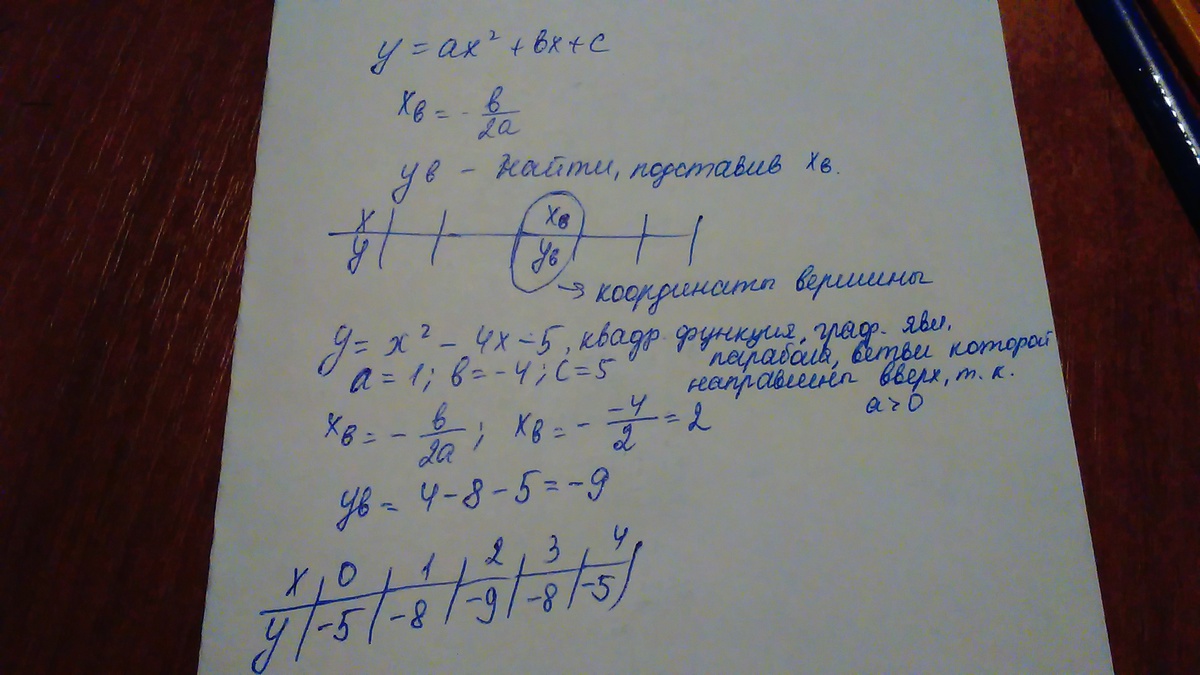 y = ax² + вx + c
xв = - в/2a
yв - найти, подставив xв.
x | | | xв | | |
y | | | yв | | |
→ координаты вершины
y = x² - 4x - 5, квадр. функция, граф. явл.
парабола, ветви которой
a = 1; в = -4; c = 5
направлены вверх, т. к.
a > 0
xв = - в/2a; xв = - -4/2 = 2
yв = 4 - 8 - 5 = -9
x | 0 | 1 | 2 | 3 | 4
y | -5 | -8 | -9 | -8 | -5